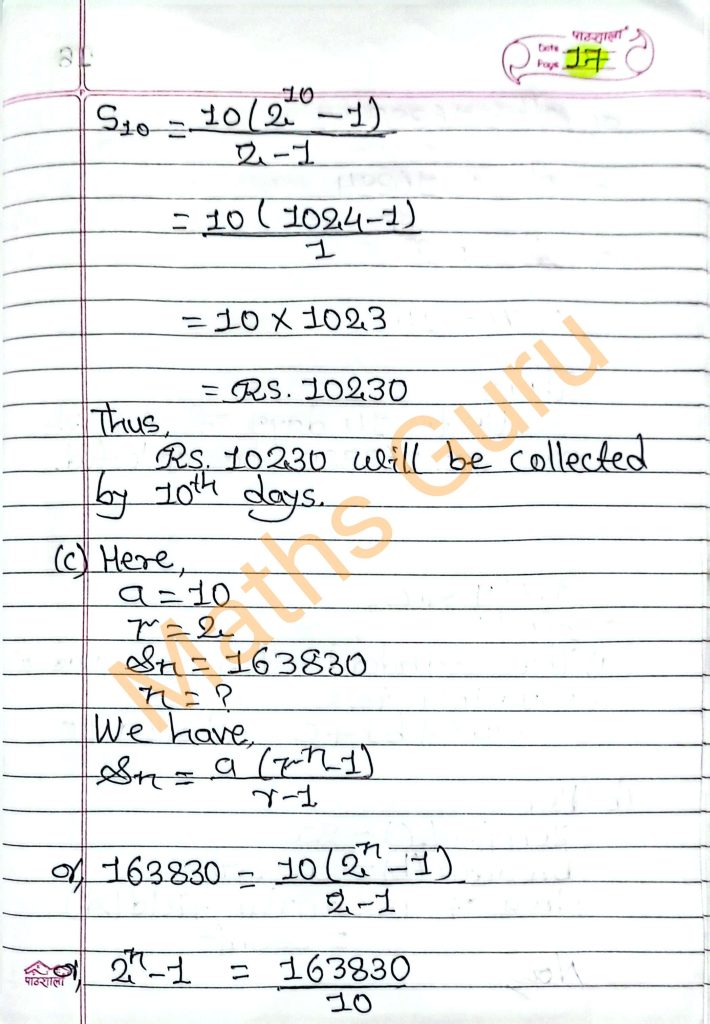 पाठशाला
Date
Page 17
S₁₀ = 10(2¹⁰ - 1) / 2-1
= 10(1024-1) / 1
= 10 × 1023
= Rs. 10230
Thus,
Rs. 10230 will be collected
by 10th days.
(c) Here,
a = 10
r = 2
Sn = 163830
n = ?
We have,
Sn = a(rⁿ-1) / r-1
or, 163830 = 10(2ⁿ-1) / 2-1
or, 2ⁿ-1 = 163830 / 10
पाठशाला
Maths Guru